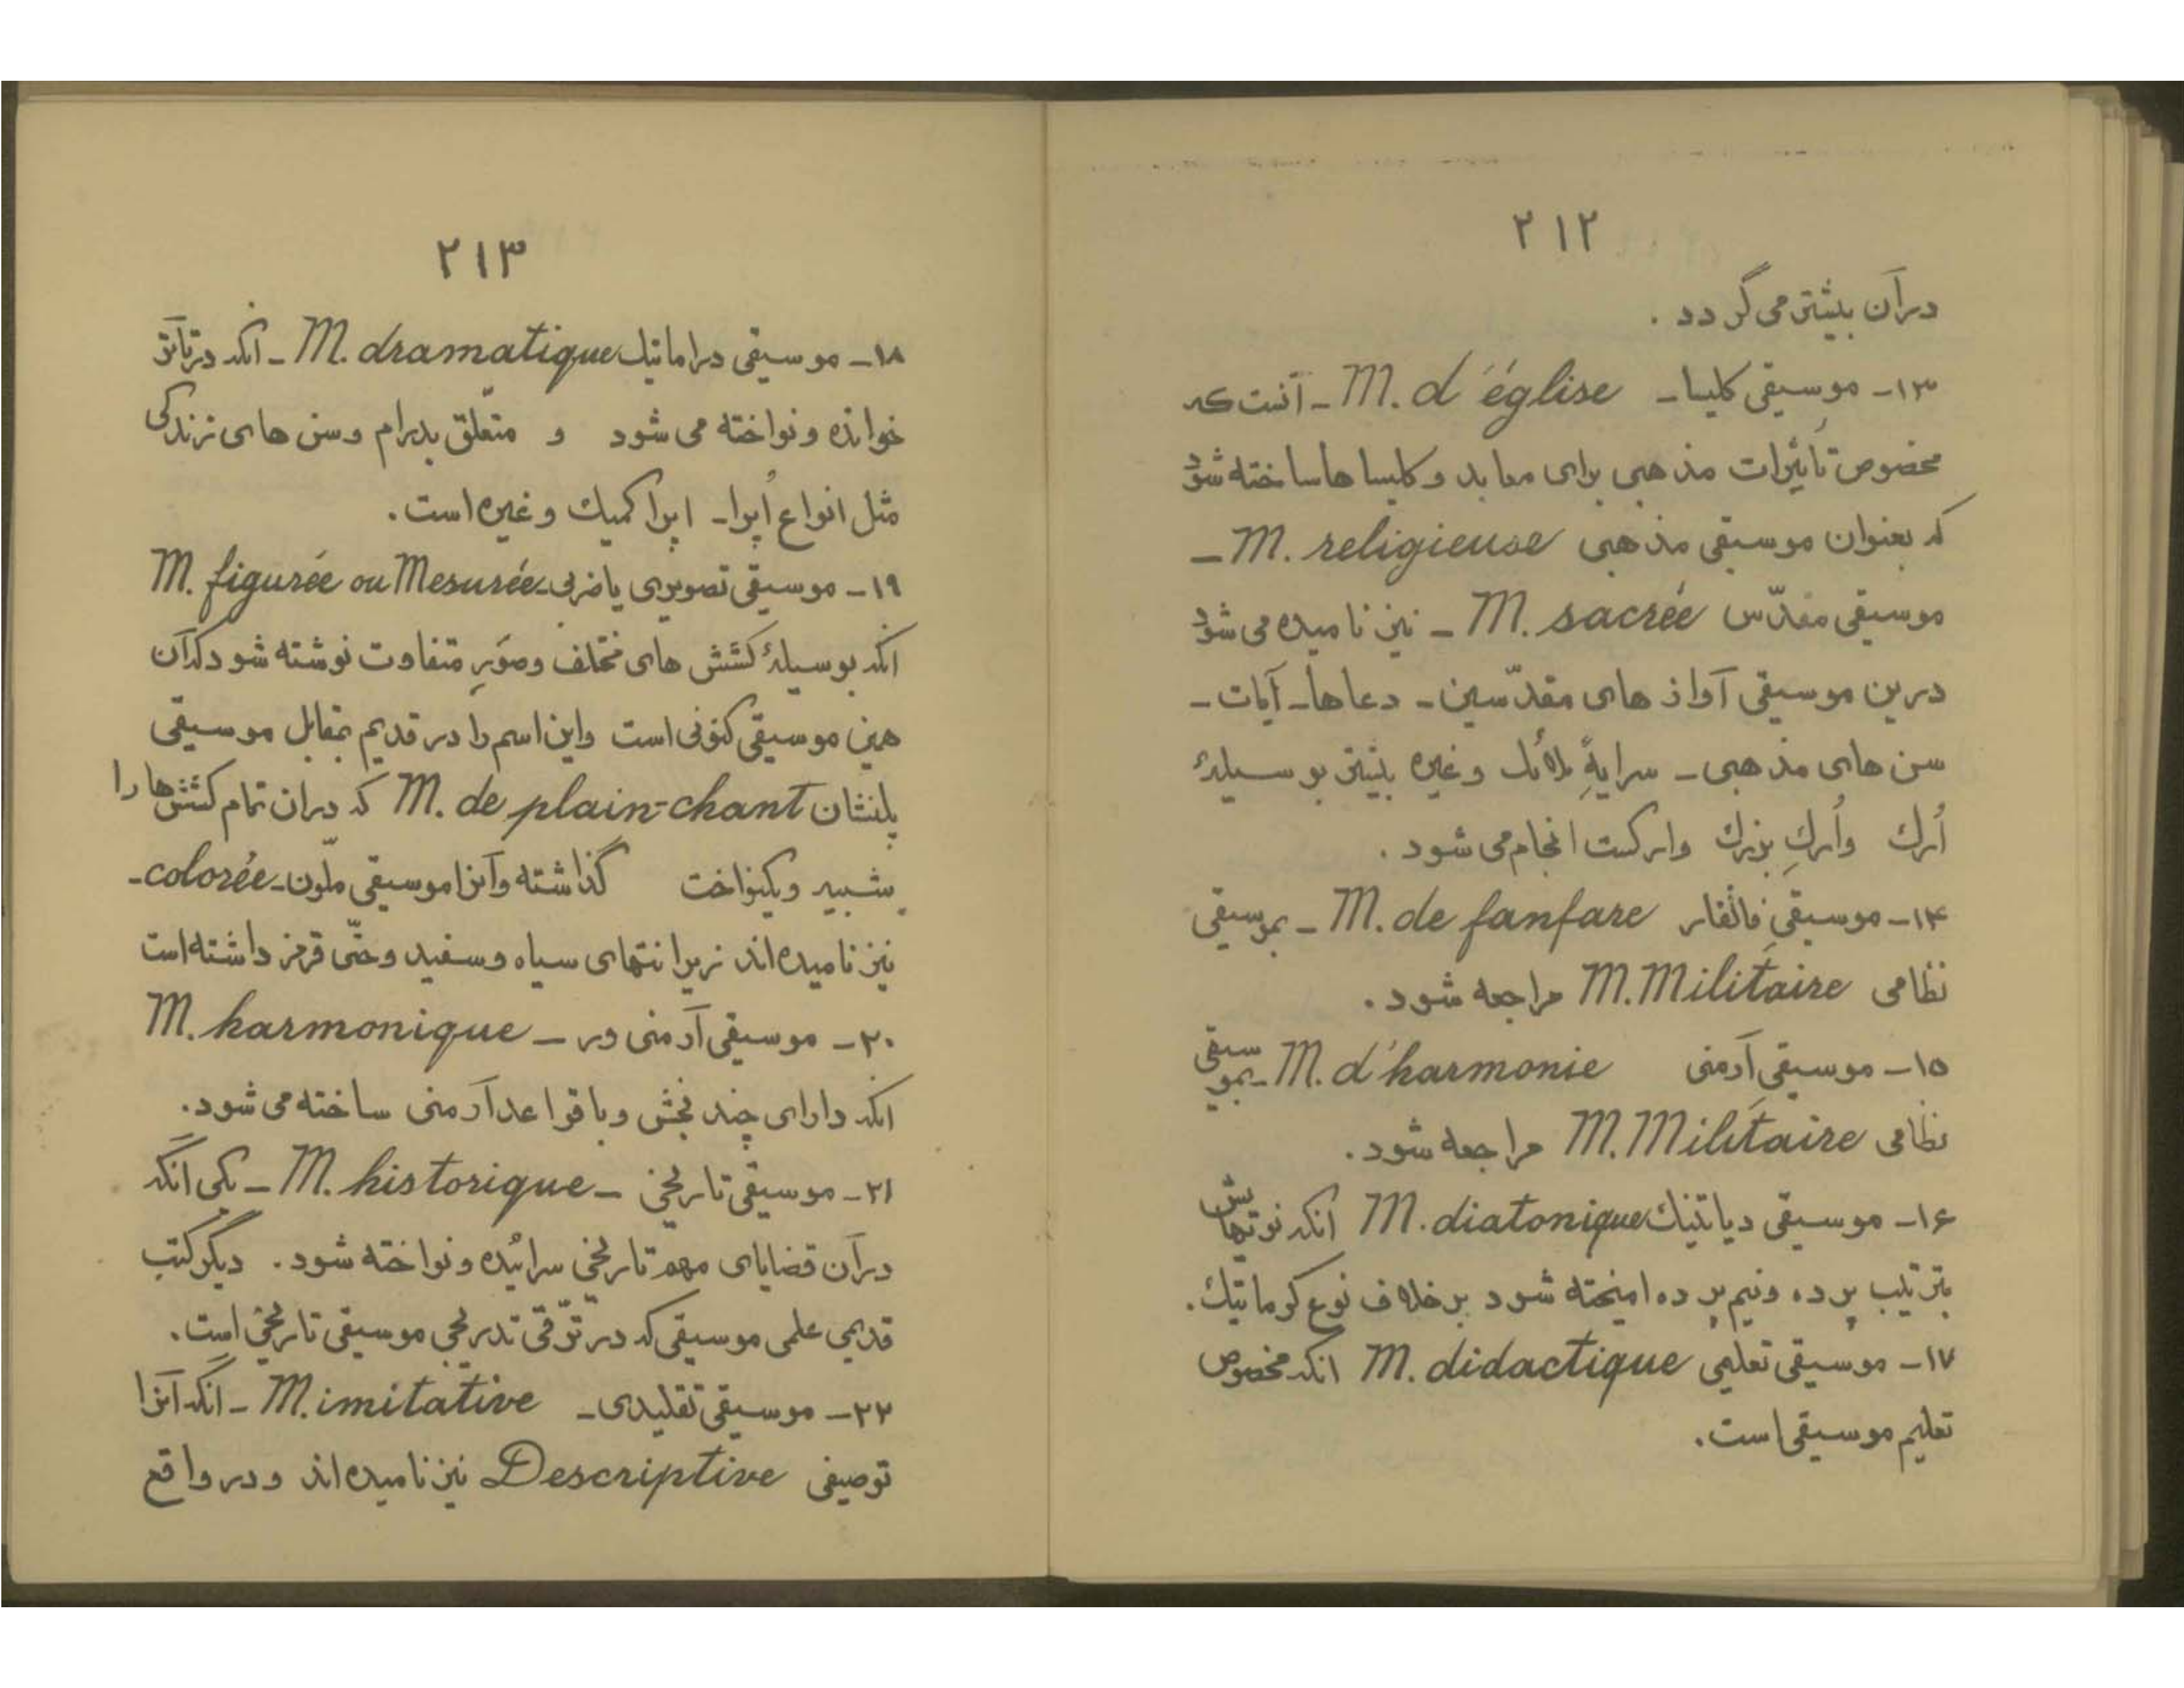 ۲۱۲
درآن بیشتر می گردد .
۱۳- موسیقی کلیسا - M. d'église - آنست که
مخصوص تأثیرات مذهبی برای معابد و کلیسا ها ساخته شود
که بعنوان موسیقی مذهبی M. religieuse -
موسیقی مقدّس M. sacrée - نیز نامیده می شود
درین موسیقی آواز های مقدّسین - دعاها - آیات -
سن های مذهبی - وغیره بیشتر بوسیلهٔ
اُرك واُركِ بزرك واركست انجام می شود .
۱۴- موسیقیِ فانفار M. de fanfare - بموسیقی
نظامی M. Militaire مراجعه شود .
۱۵- موسیقی آرمنی M. d'harmonie - بموسیقی
نظامی M. Militaire مراجعه شود .
۱۶- موسیقی دیاتنیك M. diatonique انکه نوتهایش
بترتیب پرده ونیم پرده امیخته شود برخلاف نوع کرماتیك .
۱۷- موسیقی تعلیمی M. didactique انکه مخصوص
تعلیم موسیقی است .
۲۱۳
۱۸- موسیقی دراماتیك M. dramatique - انکه درتآتر
خوانده ونواخته می شود و متعلّق بدرام وسن های زندگی
مثل انواع اُپرا - اپرا کمیك وغیره است .
۱۹- موسیقی تصویری یا ضربی - M. figurée ou Mesurée
انکه بوسیلهٔ کشش های مختلف وصُوَرِ متفاوت نوشته شود که آن
همین موسیقی کنونی است واین اسم را در قدیم بمقابل موسیقی
پلنشان M. de plain-chant که دران تمام کشش ها را
شبیه ویکنواخت گذاشته وآنرا موسیقی ملّون - colorée -
نیز نامیده اند زیرا نتهای سیاه وسفید وحتّی قرمز داشته است
۲۰- موسیقی آرمنی ور - M. harmonique
انکه دارای چند بخش وبا قواعد آرمنی ساخته می شود .
۲۱- موسیقی تاریخی - M. historique - یکی انکه
درآن قضایای مهم تاریخی سرائیده ونواخته شود . دیگر کتب
قدیمی علمی موسیقی که در ترّقی تدریجی موسیقی تاریخی است .
۲۲- موسیقی تقلیدی - M. imitative - انکه آنرا
توصیفی Descriptive نیز نامیده اند ودر واقع